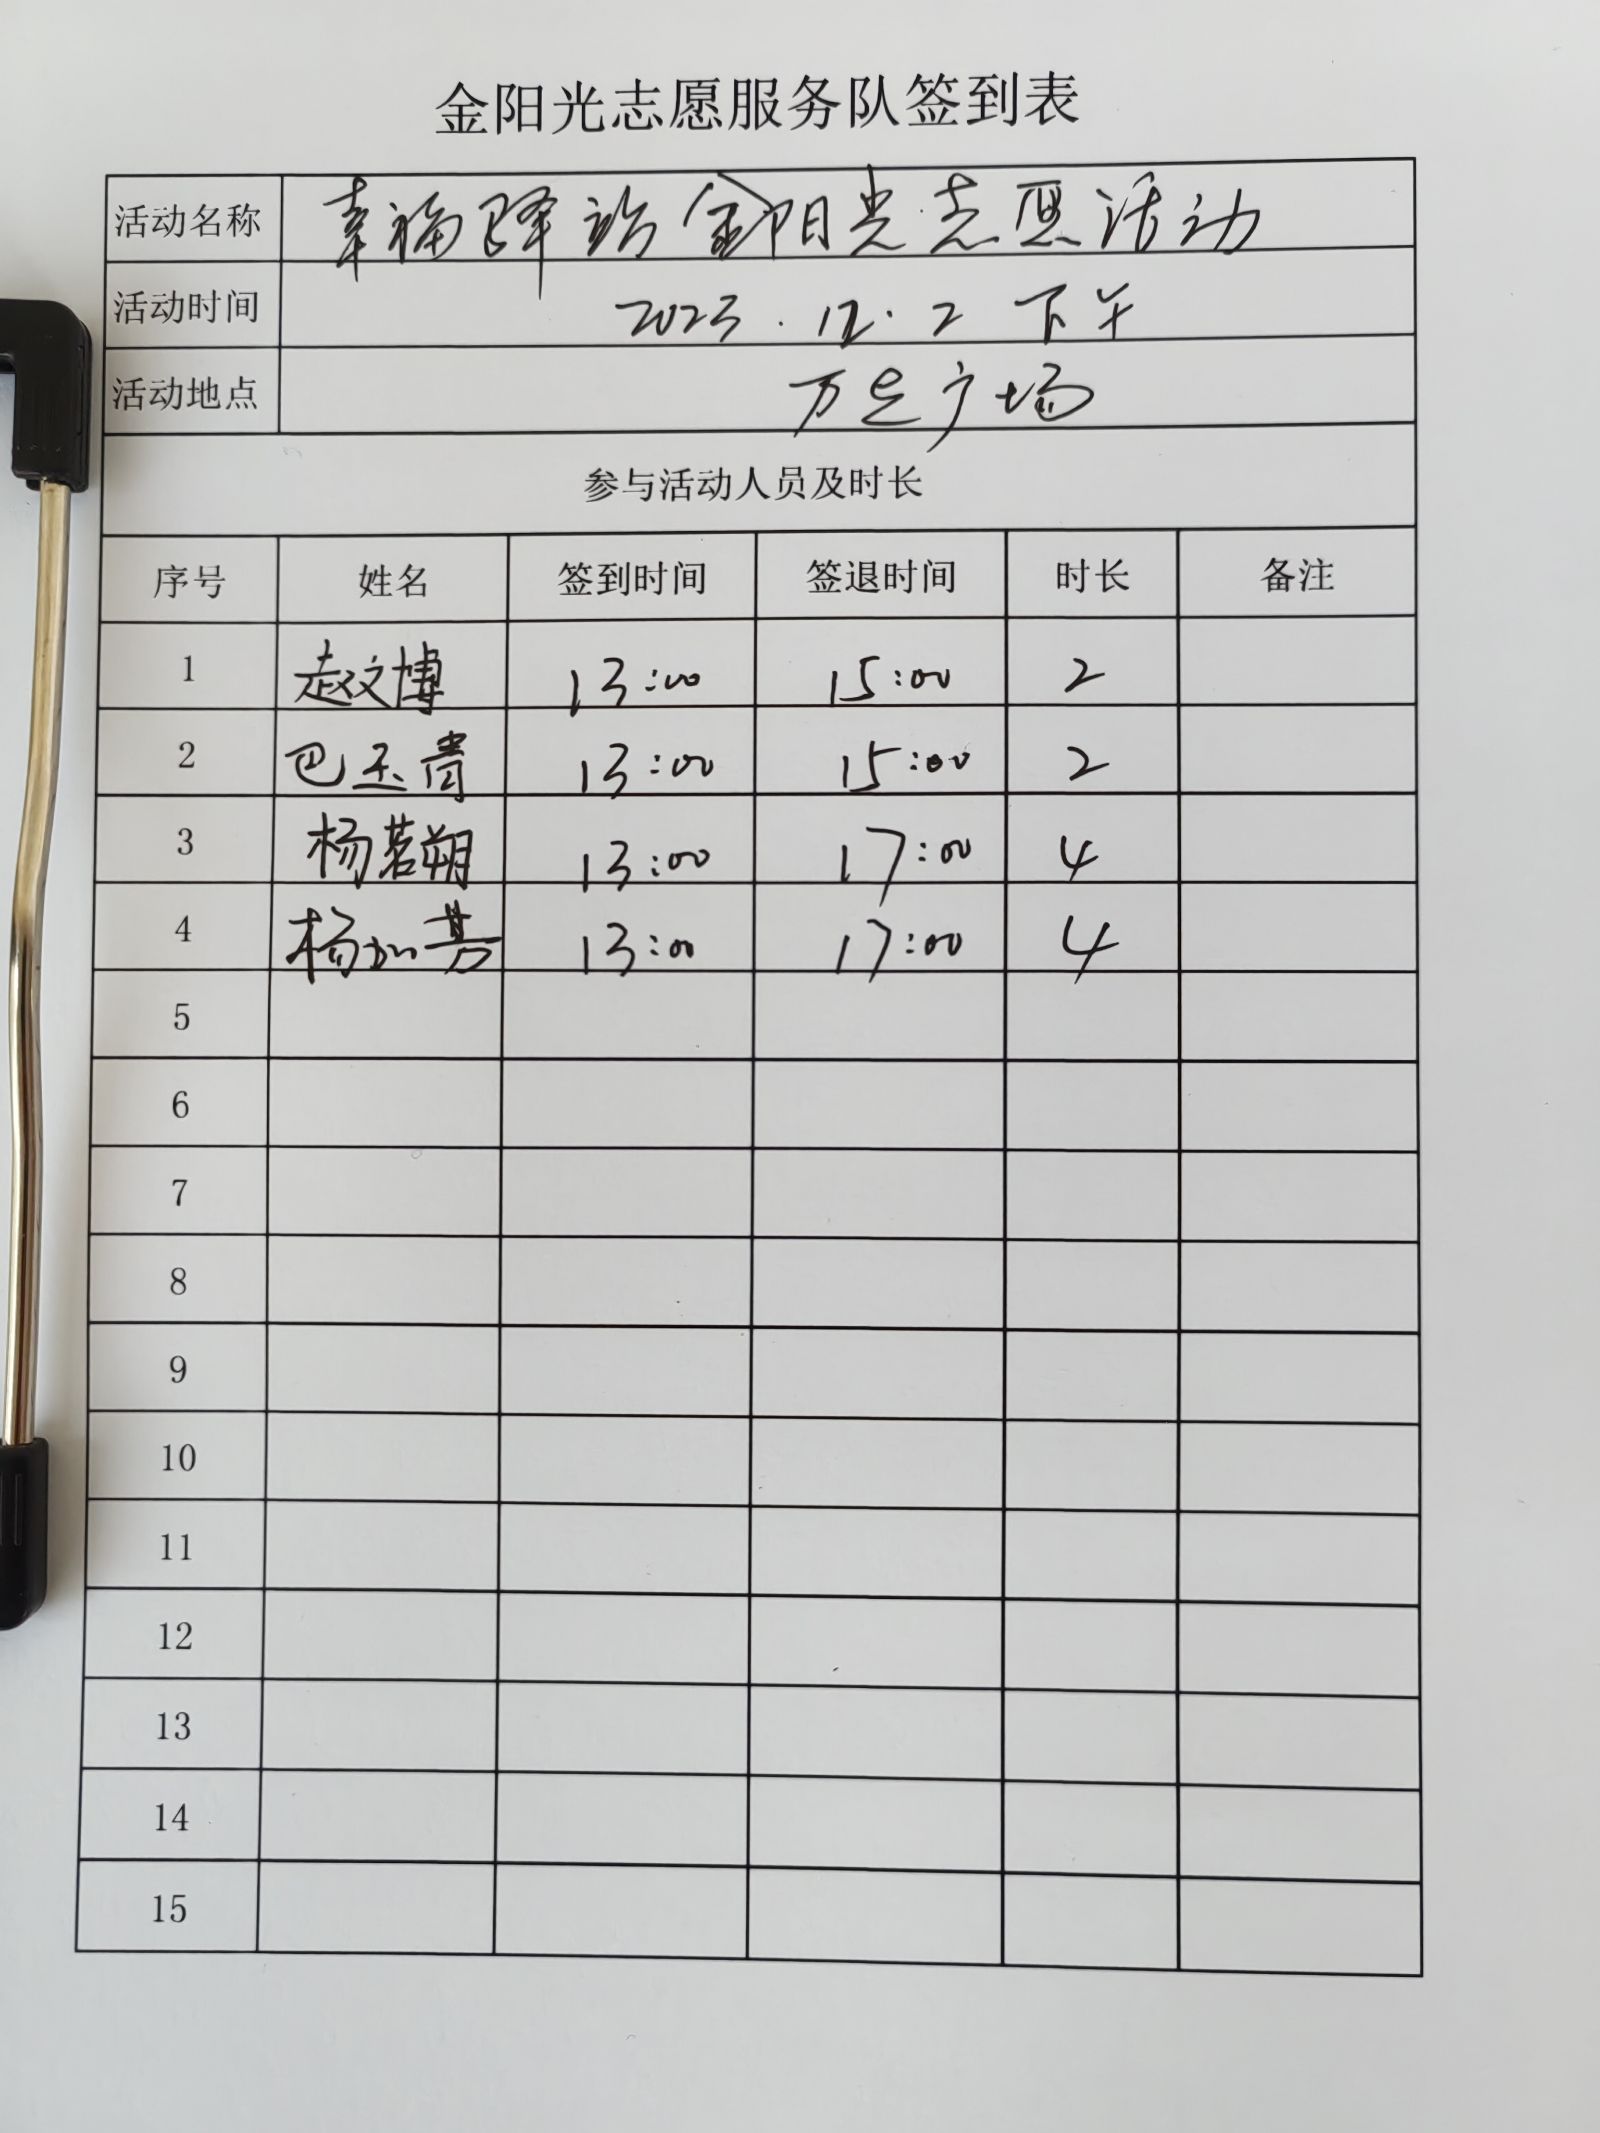 金阳光志愿服务队签到表
活动名称 幸福驿站金阳光志愿活动
活动时间 2023.12.2 下午
活动地点 万达广场
参与活动人员及时长
序号 姓名 签到时间 签退时间 时长 备注
1 赵文博 13:00 15:00 2
2 巴玉青 13:00 15:00 2
3 杨若朔 13:00 17:00 4
4 杨 13:00 17:00 4
5
6
7
8
9
10
11
12
13
14
15